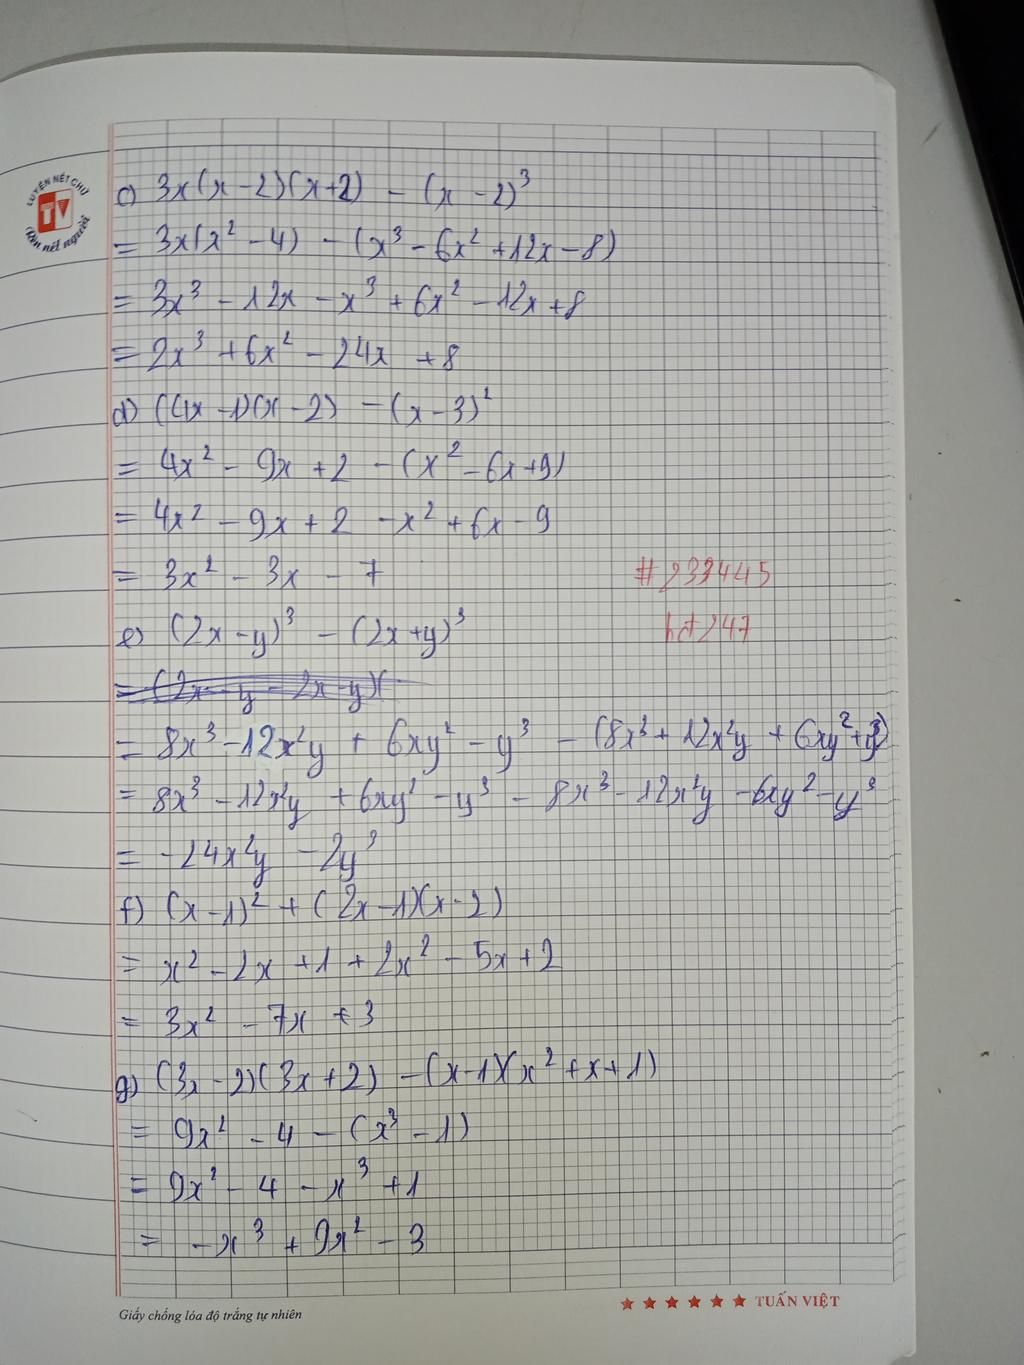 LUYỆN NẾT CHỮ
TV
Rèn nết người
c) 3x(x-2)(x+2) - (x-2)³
= 3x(x² - 4) - (x³ - 6x² + 12x - 8)
= 3x³ - 12x - x³ + 6x² - 12x + 8
= 2x³ + 6x² - 24x + 8
d) (4x-1)(x-2) - (x-3)²
= 4x² - 9x + 2 - (x² - 6x + 9)
= 4x² - 9x + 2 - x² + 6x - 9
= 3x² - 3x - 7
#232445
hd247
e) (2x-y)³ - (2x+y)³
= (2x - y - 2x - y)(
= 8x³ - 12x²y + 6xy² - y³ - (8x³ + 12x²y + 6xy² + y³)
= 8x³ - 12x²y + 6xy² - y³ - 8x³ - 12x²y - 6xy² - y³
= -24x²y - 2y³
f) (x-1)² + (2x-1)(x-2)
= x² - 2x + 1 + 2x² - 5x + 2
= 3x² - 7x + 3
g) (3x-2)(3x+2) - (x-1)(x² + x + 1)
= 9x² - 4 - (x³ - 1)
= 9x² - 4 - x³ + 1
= -x³ + 9x² - 3
Giấy chống lóa độ trắng tự nhiên
TUẤN VIỆT